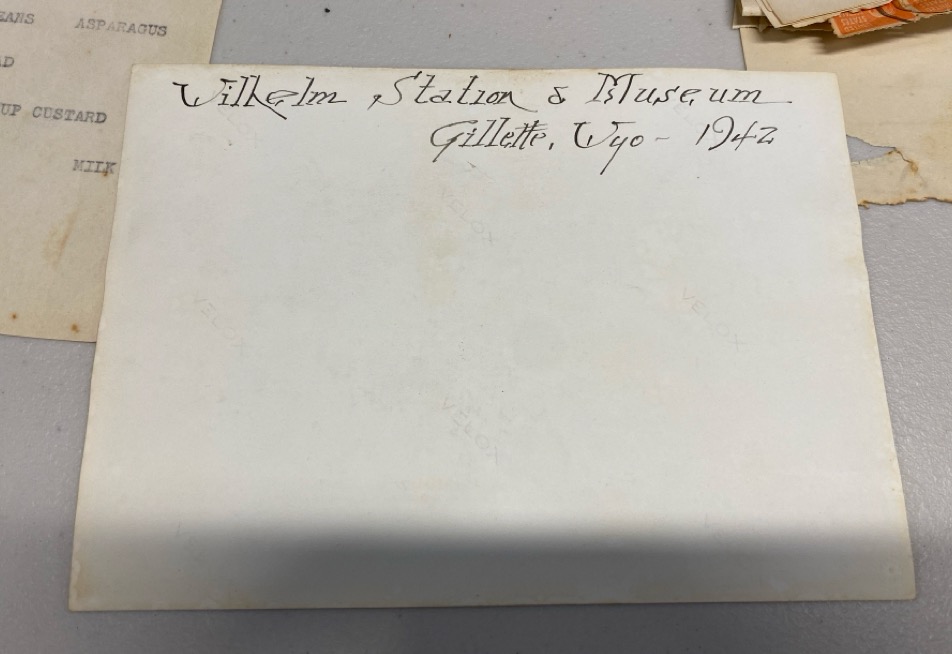 Wilhelm Station & Museum
Gillette, Wyo - 1942
ASPARAGUS
UP CUSTARD
MILK
VELOX
VELOX
VELOX
VELOX